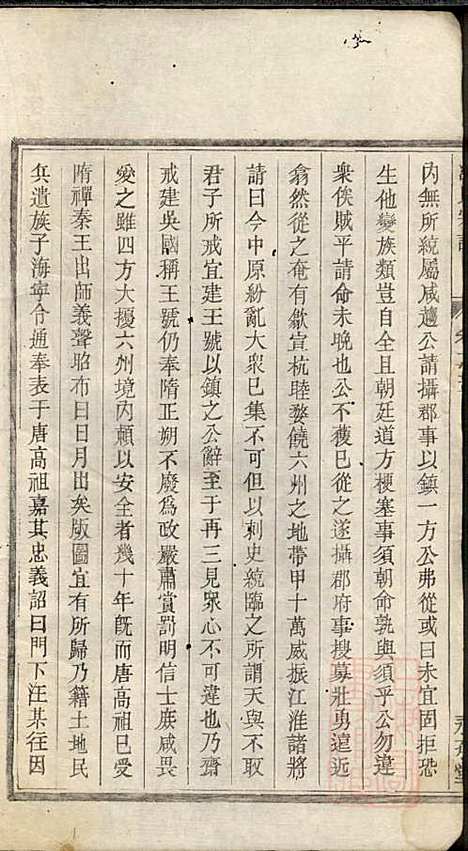 內無所統屬咸邀公請攝郡事以鎮一方公弗從或曰未宜固拒恐
生他變族類豈自全且朝廷道方梗塞事須朝命孰與須乎公勿違
衆俟賊平請命未晚也公不獲已從之遂攝郡府事搜募壯勇遠近
翕然從之奄有歙宣杭睦婺饒六州之地帶甲十萬威振江淮諸將
請曰今中原紛亂大衆已集不可但以刺史統臨之所謂天與不取
君子所戒宜建王號以鎮之公辭至于再三見衆心不可違也乃齋
戒建吳國稱王號仍奉隋正朔不廢爲政嚴肅賞罰明信士庶咸畏
愛之雖四方大擾六州境內賴以安全者幾十年旣而唐高祖已受
隋禪秦王出師義聲昭布曰日月出矣版圖宜有所歸乃籍土地民
兵遣族子海寧令通奉表于唐高祖嘉其忠義詔曰門下汪某往因